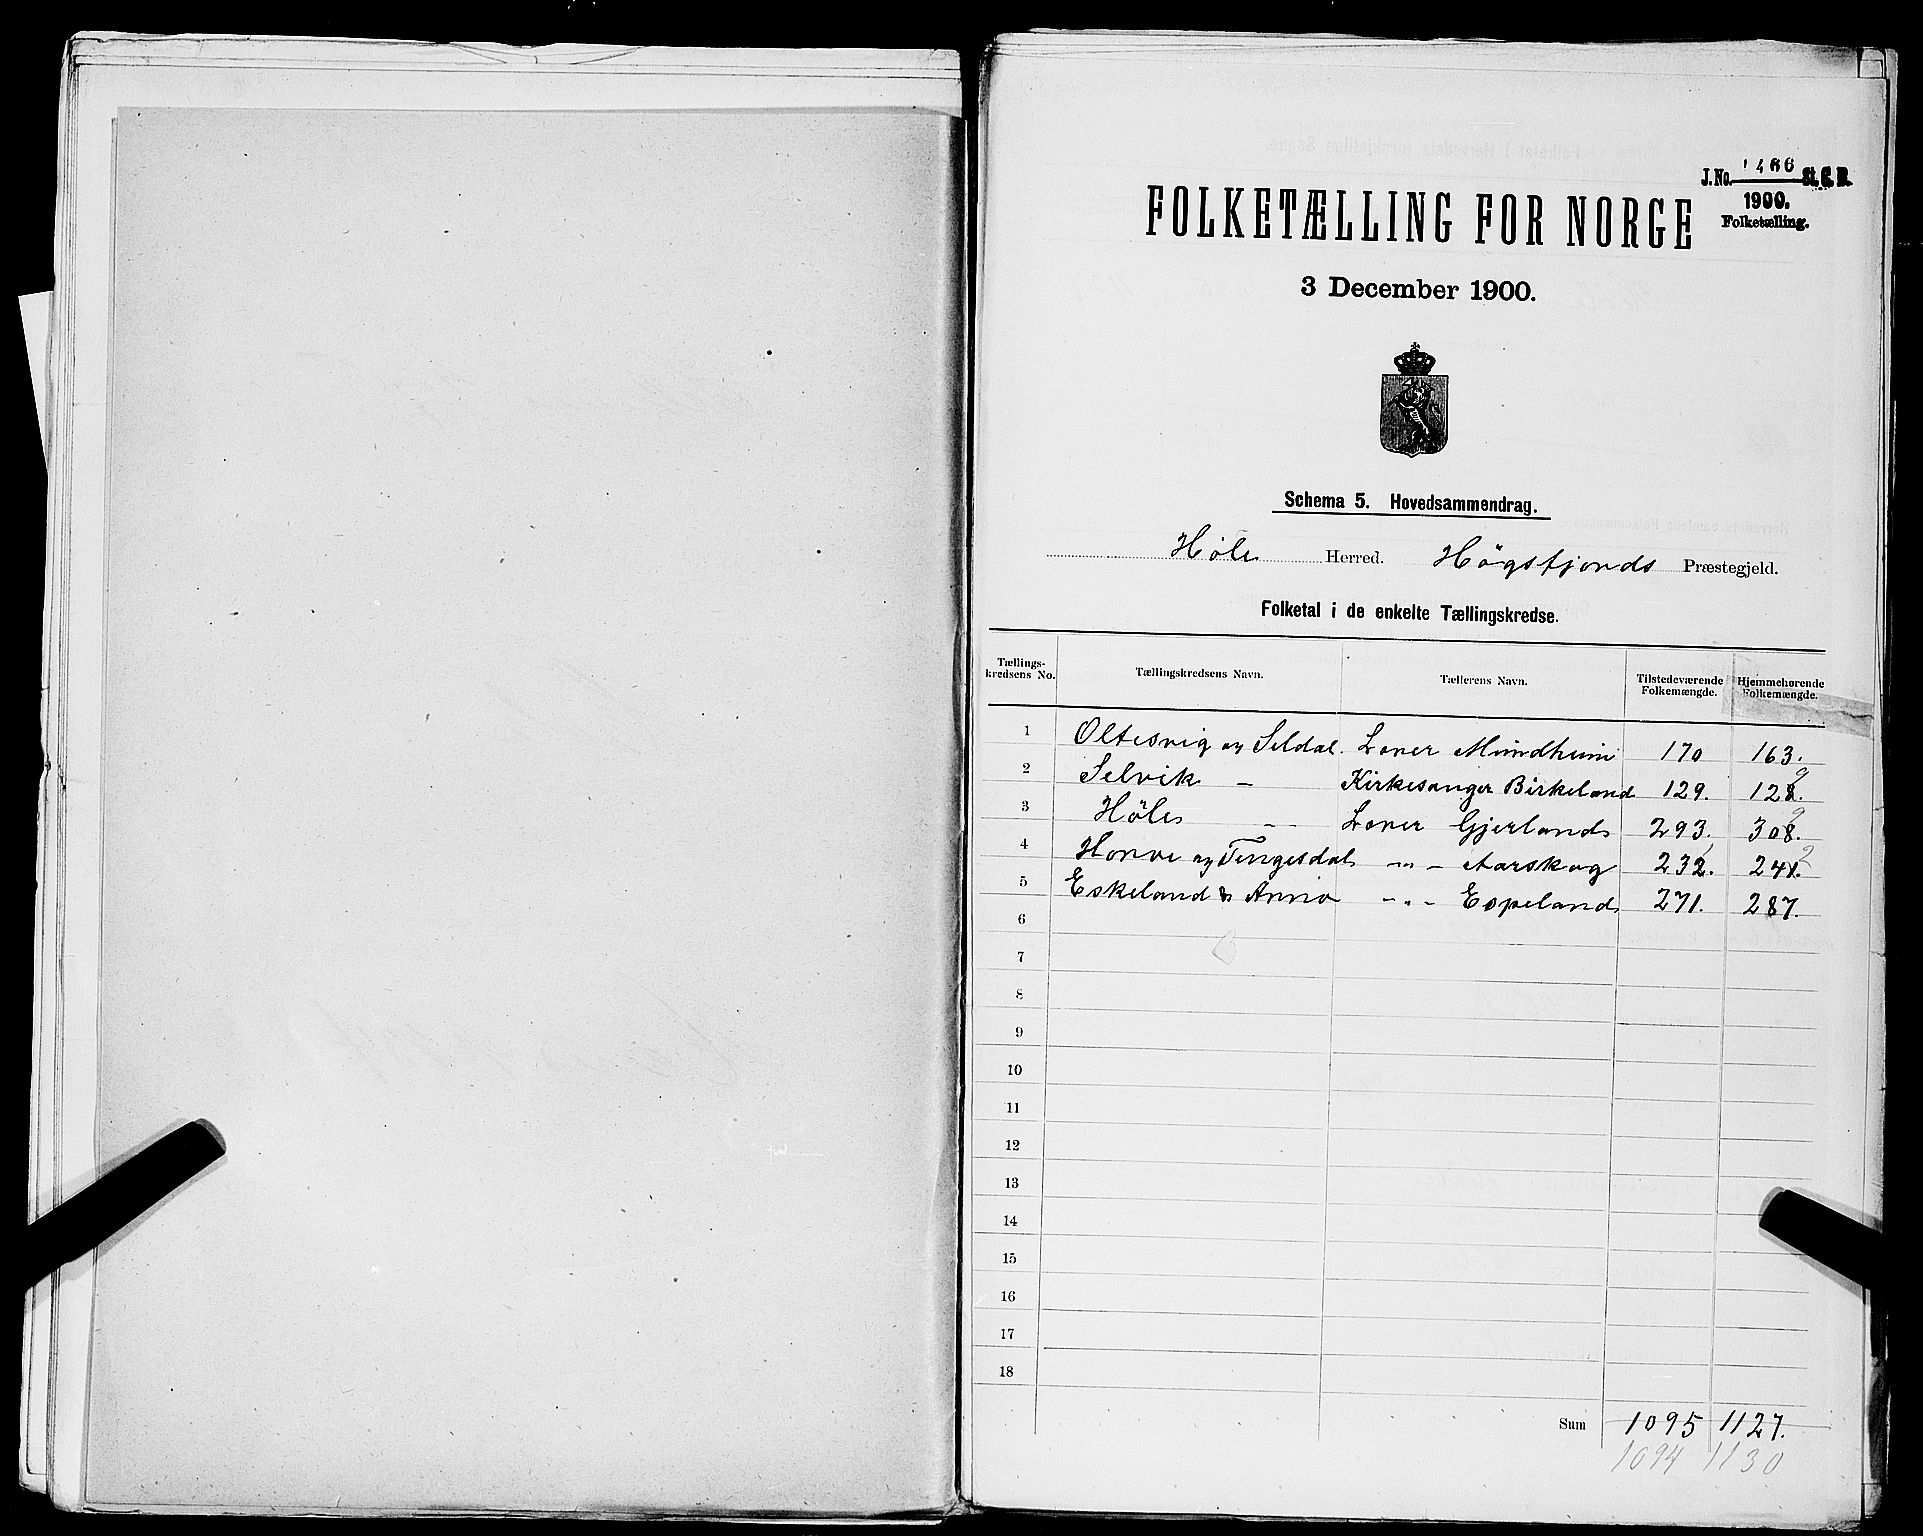 J. No. 1466 St. C. B.
1900.
Folketælling.
FOLKETÆLLING FOR NORGE
3 December 1900.
Schema 5. Hovedsammendrag.
Høle Herred. Høgsfjords Præstegjeld.
Folketal i de enkelte Tællingskredse.
Tællings-kredsens No. Tællingskredsens Navn. Tællerens Navn. Tilstedeværende Folkemængde. Hjemmehørende Folkemængde.
1 Oltesvig og Seldal. Lærer Mundheim 170 163.
2 Selvik — Kirkesanger Birkeland 129. 128. 9
3 Høle — — Lærer Gjerlands 293. 308. 9
4 Honve og Tengesdal — " — Aarskog 232. 241. 2
5 Eskeland & Annio — " — Espeland 271. 287.
6
7
8
9
10
11
12
13
14
15
16
17
18
Sum 1095 1127.
1094 1130